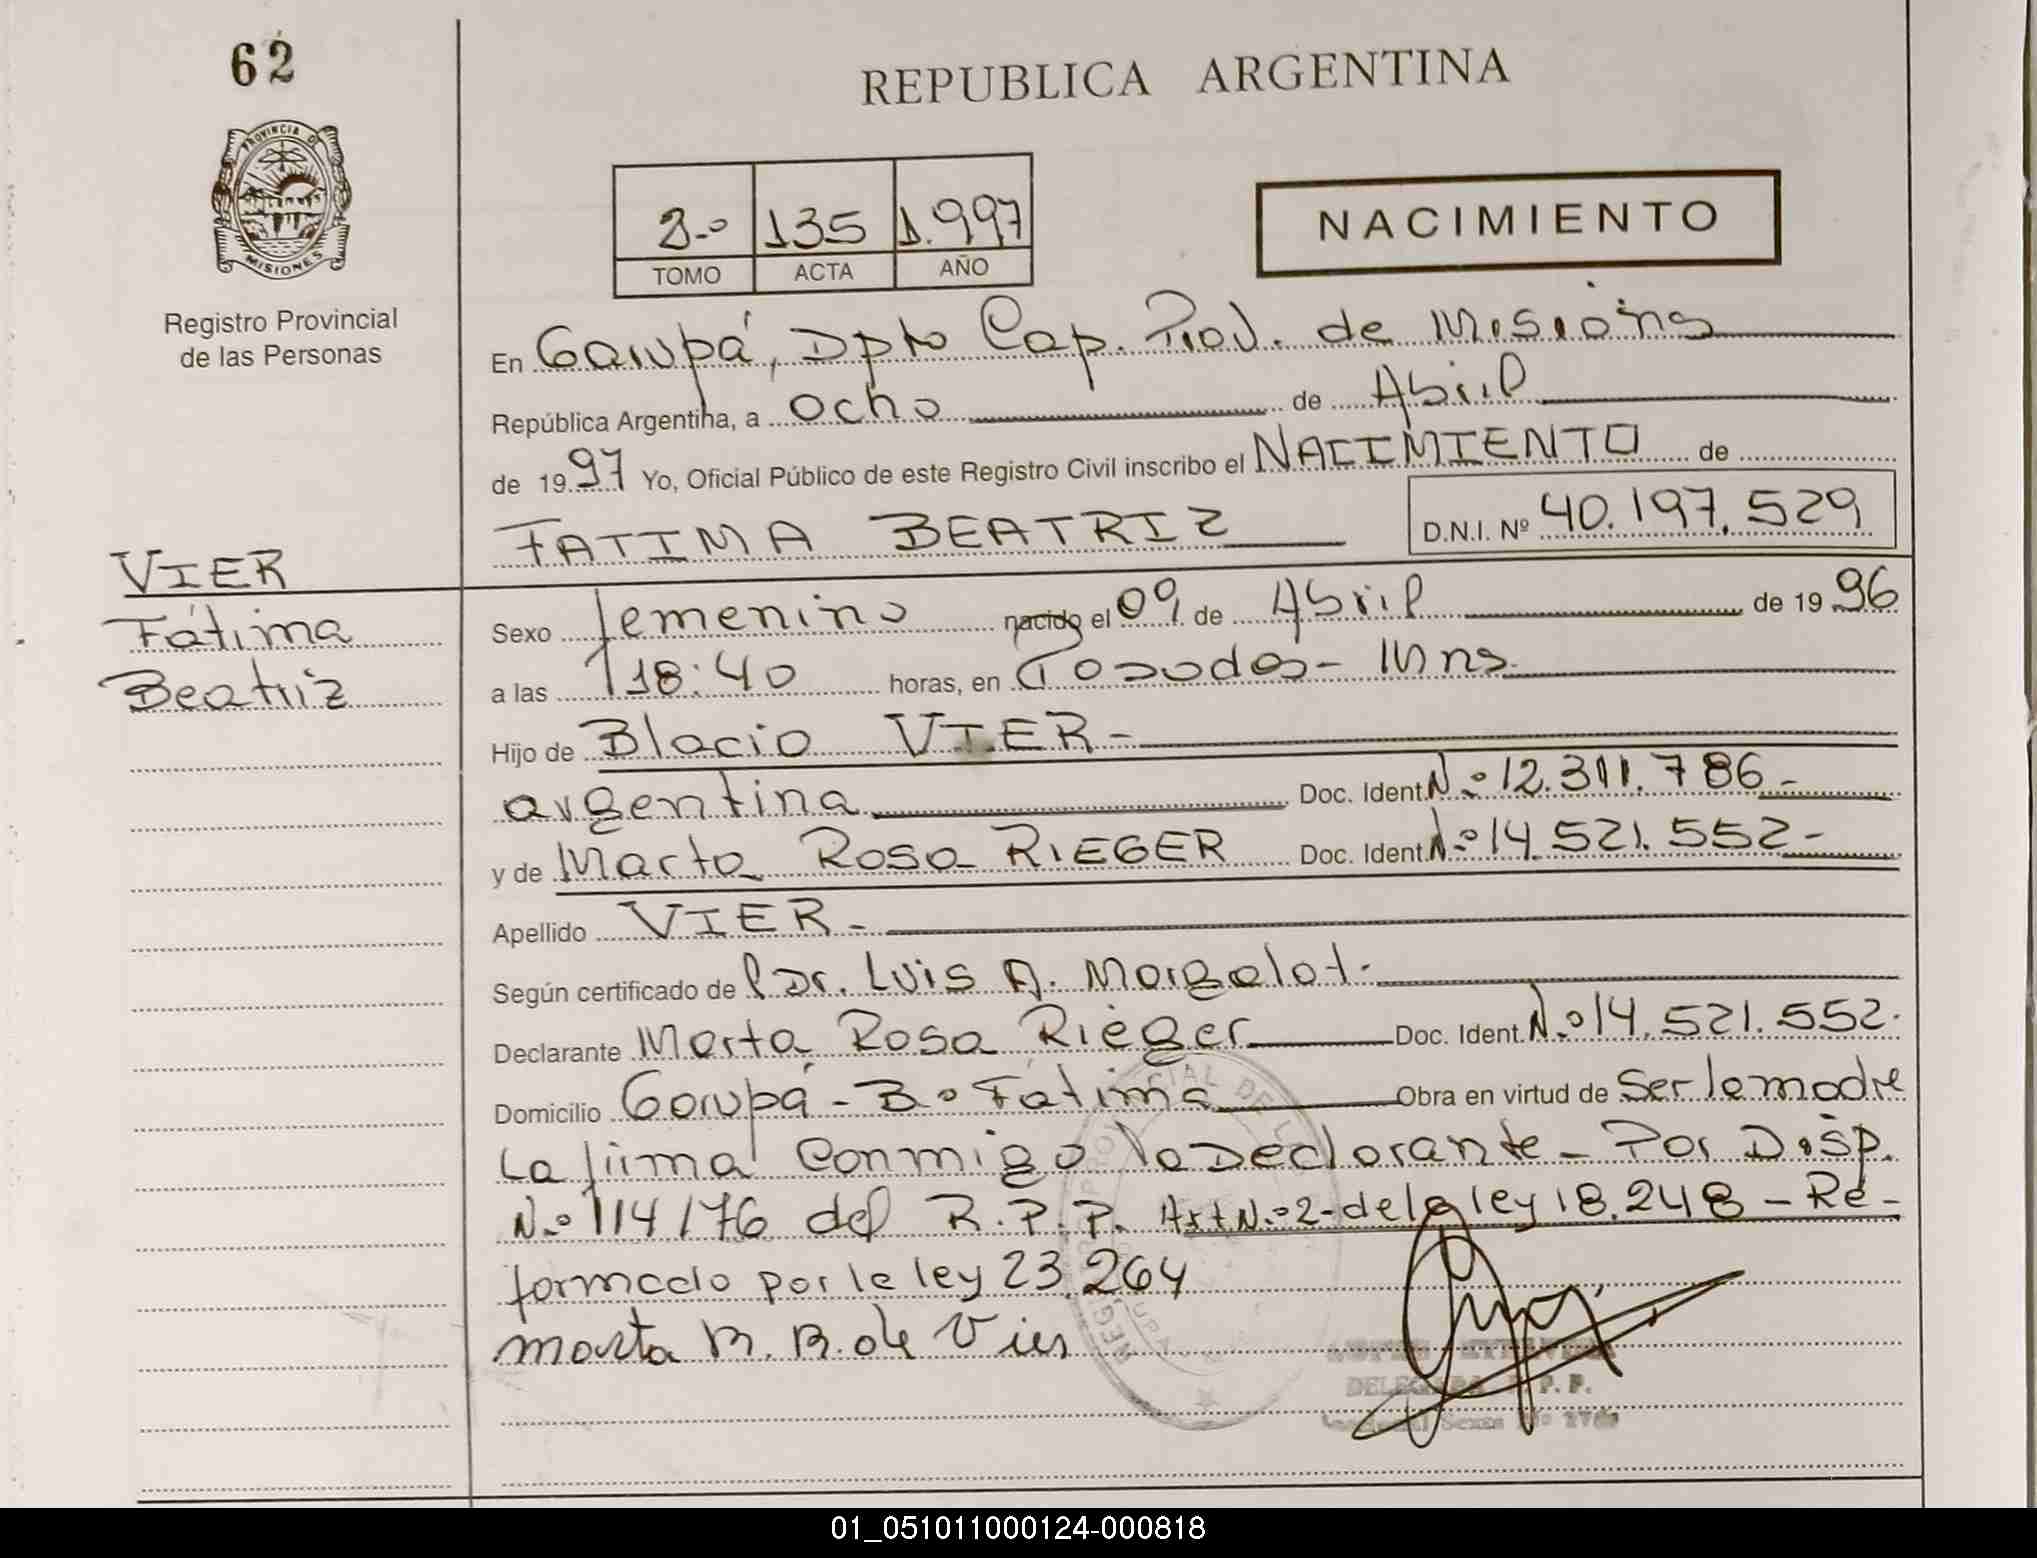 62
REPUBLICA ARGENTINA
PROVINCIA DE
MISIONES
Registro Provincial
de las Personas
2-º 135 1.997
TOMO ACTA AÑO
NACIMIENTO
En Garupá, Dpto Cap. Prov. de Misiones
República Argentina, a ocho de Abril
de 1997 Yo, Oficial Público de este Registro Civil inscribo el NACIMIENTO de
FATIMA BEATRIZ D.N.I. Nº 40.197.529
VIER
Fátima
Beatriz
Sexo femenino nacido el 09 de Abril de 1996
a las 18:40 horas, en Posadas - Mnes.
Hijo de Blacio VIER -
argentina Doc. Ident. Nº 12.311.786 -
y de Marta Rosa RIEGER Doc. Ident. Nº 14.521.552 -
Apellido VIER -
Según certificado de Dr. Luis A. Morgalot.
Declarante Marta Rosa Rieger Doc. Ident. Nº 14.521.552.
Domicilio Garupá - Bº Fátima Obra en virtud de Ser la madre
La firma conmigo la Declarante - Por Disp.
Nº 114/76 del R.P.P. Art Nº 2 - de la ley 18.248 - Re-
formado por la ley 23.264
Marta R. R. de Vier
DELEGADA R. P. P.
01_051011000124-000818